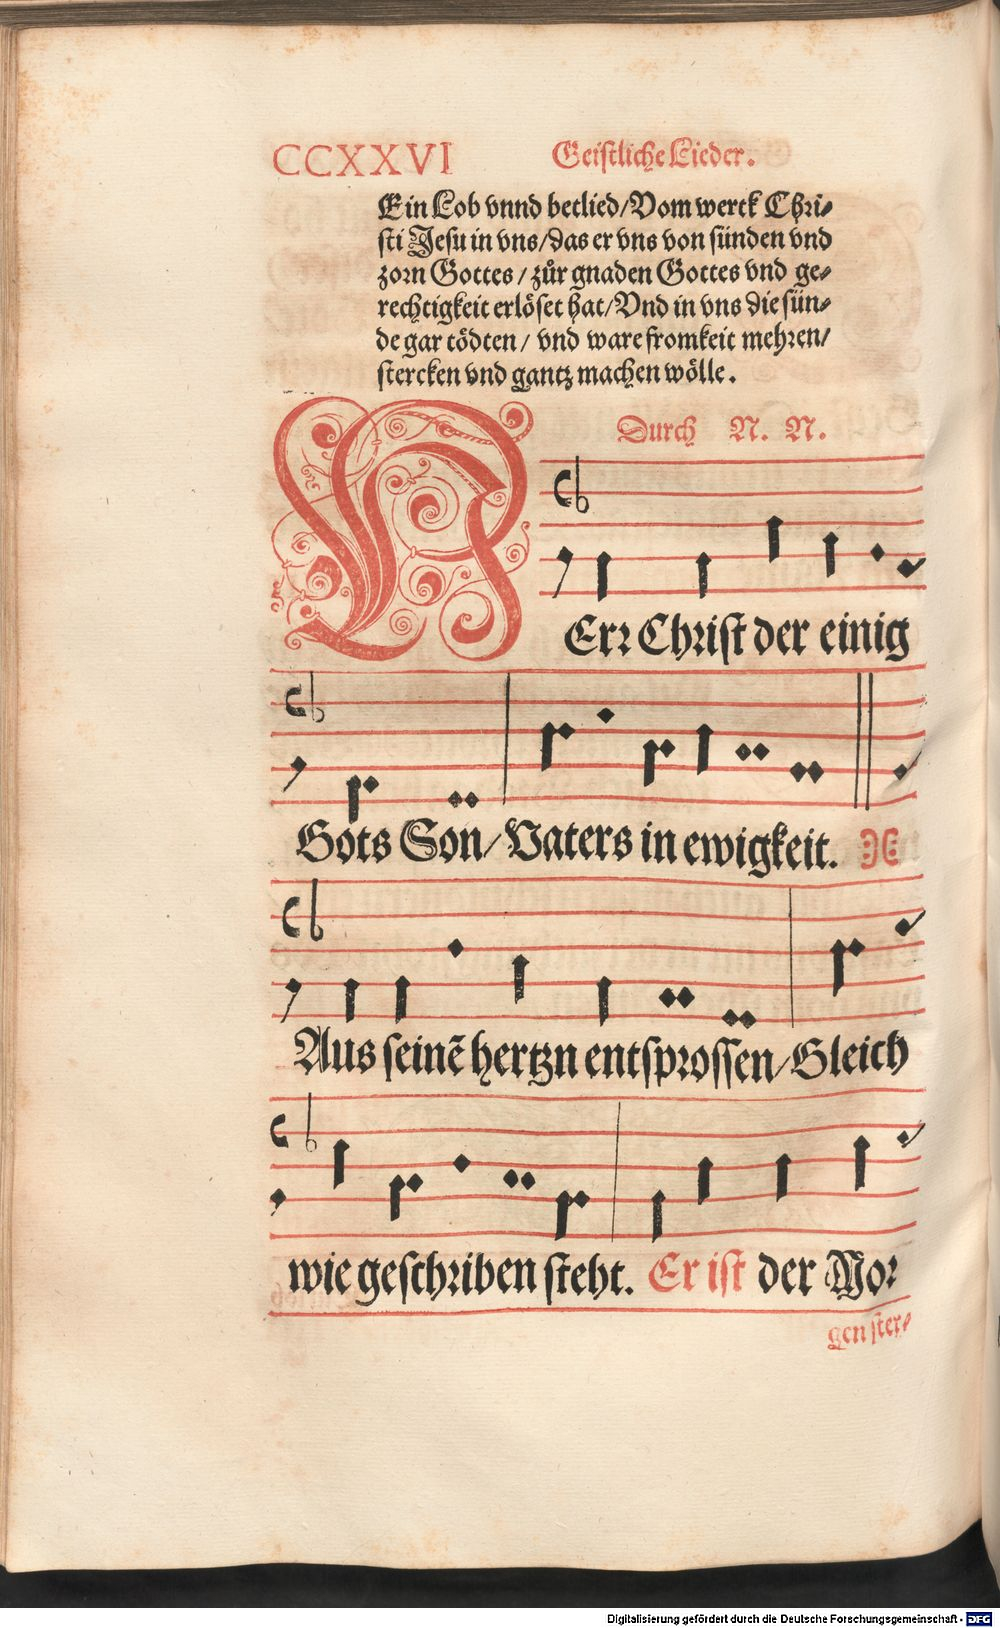 CCXXVI Geistliche Lieder.
Ein Lob vnnd betlied/Vom werck Chri⸗
sti Jesu in vns/das er vns von sünden vnd
zorn Gottes/zůr gnaden Gottes vnd ge⸗
rechtigkeit erlöset hat/Vnd in vns die sün⸗
de gar tödten/vnd ware fromkeit mehren/
stercken vnd gantz machen wölle.
Durch N. N.
HErr Christ der einig
Gots Son/Vaters in ewigkeit.
Aus seinē hertzn entsprossen/Gleich
wie geschriben steht. Er ist der Mor
gen ster⸗
Digitalisierung gefördert durch die Deutsche Forschungsgemeinschaft - DFG